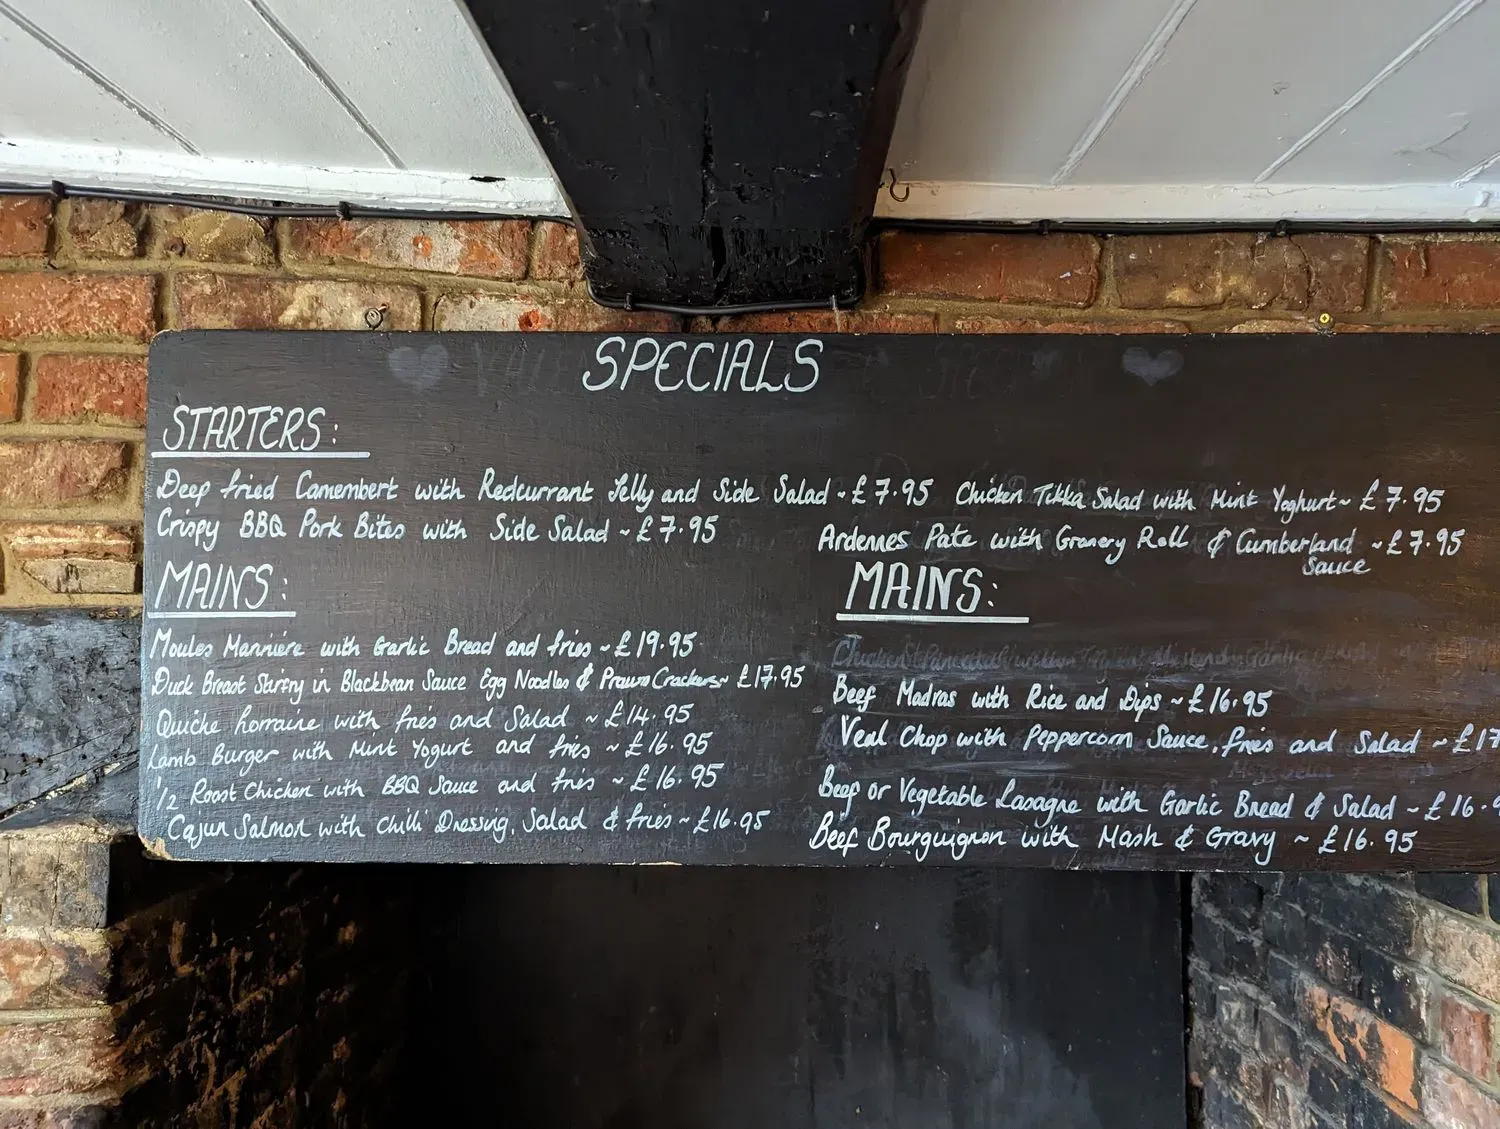 SPECIALS
STARTERS:
Deep fried Camembert with Redcurrant Jelly and Side Salad ~ £7.95
Crispy BBQ Pork Bites with Side Salad ~ £7.95
Chicken Tikka Salad with Mint Yoghurt ~ £7.95
Ardennes Pate with Granery Roll & Cumberland ~ £7.95
Sauce
MAINS:
Moules Marinière with Garlic Bread and fries ~ £19.95
Duck Breast Stirfry in Blackbean Sauce Egg Noodles & Prawn Crackers ~ £17.95
Quiche Lorraine with fries and Salad ~ £14.95
Lamb Burger with Mint Yogurt and fries ~ £16.95
1/2 Roast Chicken with BBQ Sauce and fries ~ £16.95
Cajun Salmon with Chilli Dressing, Salad & fries ~ £16.95
MAINS:
Beef Madras with Rice and Dips ~ £16.95
Veal Chop with Peppercorn Sauce, fries and Salad ~ £17
Beef or Vegetable Lasagne with Garlic Bread & Salad ~ £16.9
Beef Bourguignon with Mash & Gravy ~ £16.95